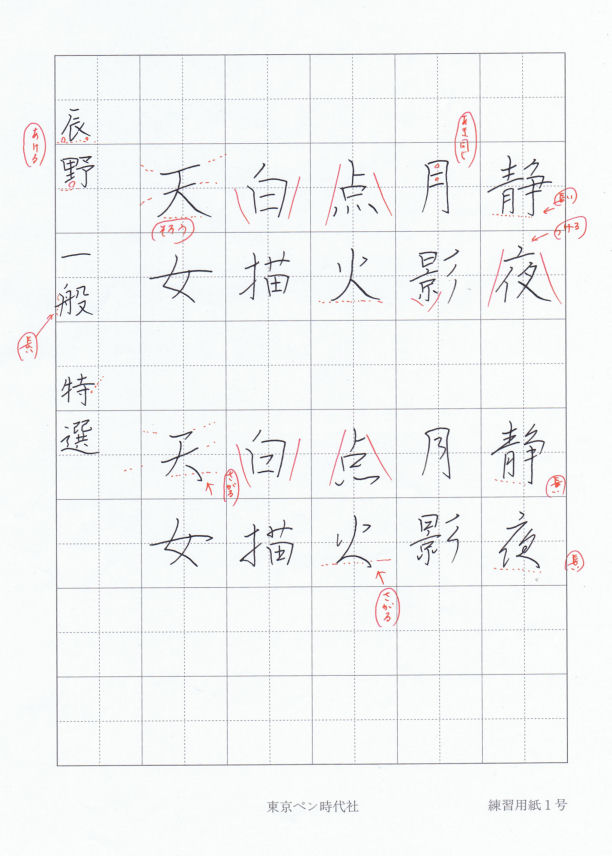 静夜
静夜
月影
月影
点火
点火
白描
白描
天女
天女
辰野 一般 特選
あける
長
そろう
さがる
さがる
長い
つける
長
長
東京ペン時代社
練習用紙1号